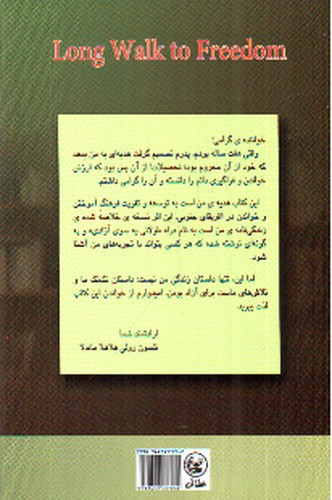 Long Walk to Freedom
خواننده ی گرامی!
وقتی هفت ساله بودم، پدرم تصمیم گرفت هدیه‌ای به من بدهد
که خود از آن محروم بود: تحصیلات! از آن پس بود که ارزش
خواندن و فراگیری دانش را دانسته و آن را گرامی داشتم.
این کتاب هدیه ی من است به توسعه و تقویت فرهنگ آموختن
و خواندن در افریقای جنوبی. این اثر نسخه ی خلاصه شده ی
زندگی‌نامه ی من است به نام «راه طولانی به سوی آزادی» و به
گونه‌ای نوشته شده که هر کسی بتواند با تجربه‌های من آشنا
شود.
اما این، تنها داستان زندگی من نیست؛ داستان تک‌تک ما و
تلاش‌های ماست برای آزاد بودن. امیدوارم از خواندن این کتاب
لذت ببرید.
ارادتمند شما
نلسون رولی هلاهلا ماندلا
عطائی